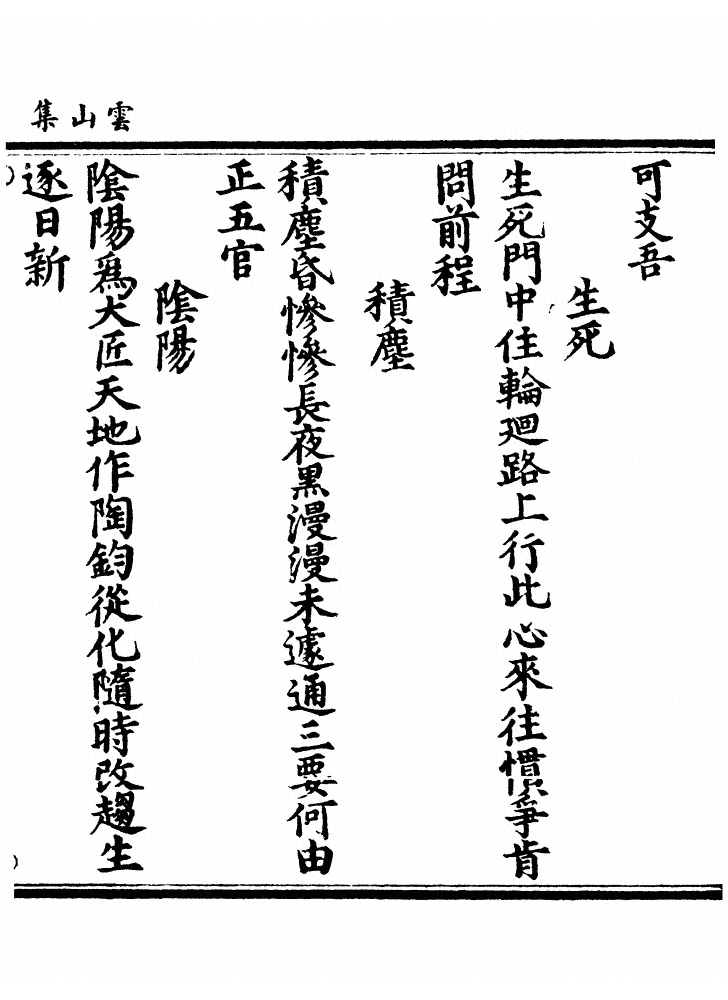 雲山集
可支吾
生死
生死門中住輪廻路上行此心來往慣爭肯
問前程
積塵
積塵昏慘慘長夜黑漫漫未遽通三要何由
正五官
陰陽
陰陽爲大匠天地作陶鈞從化隨時改趨生
逐日新